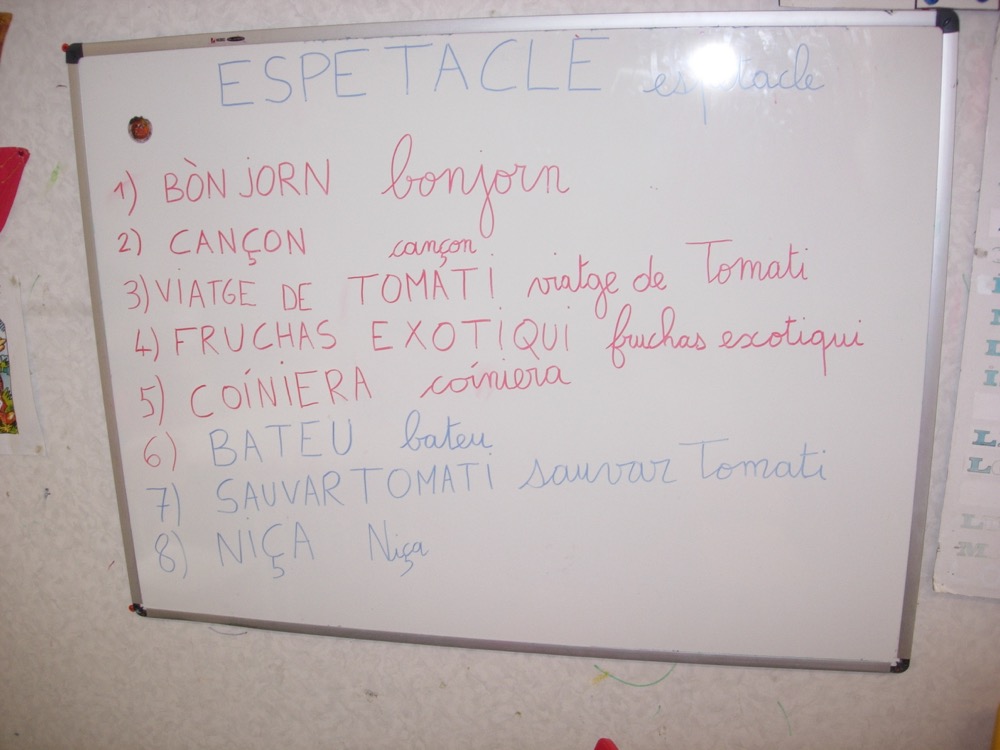 ESPETACLE espetacle
1) BÒNJORN bonjorn
2) CANÇON cançon
3) VIATGE DE TOMATI viatge de Tomati
4) FRUCHAS EXOTIQUI fruchas exotiqui
5) COÍNIERA coíniera
6) BATEU bateu
7) SAUVAR TOMATI sauvar Tomati
8) NIÇA Niça